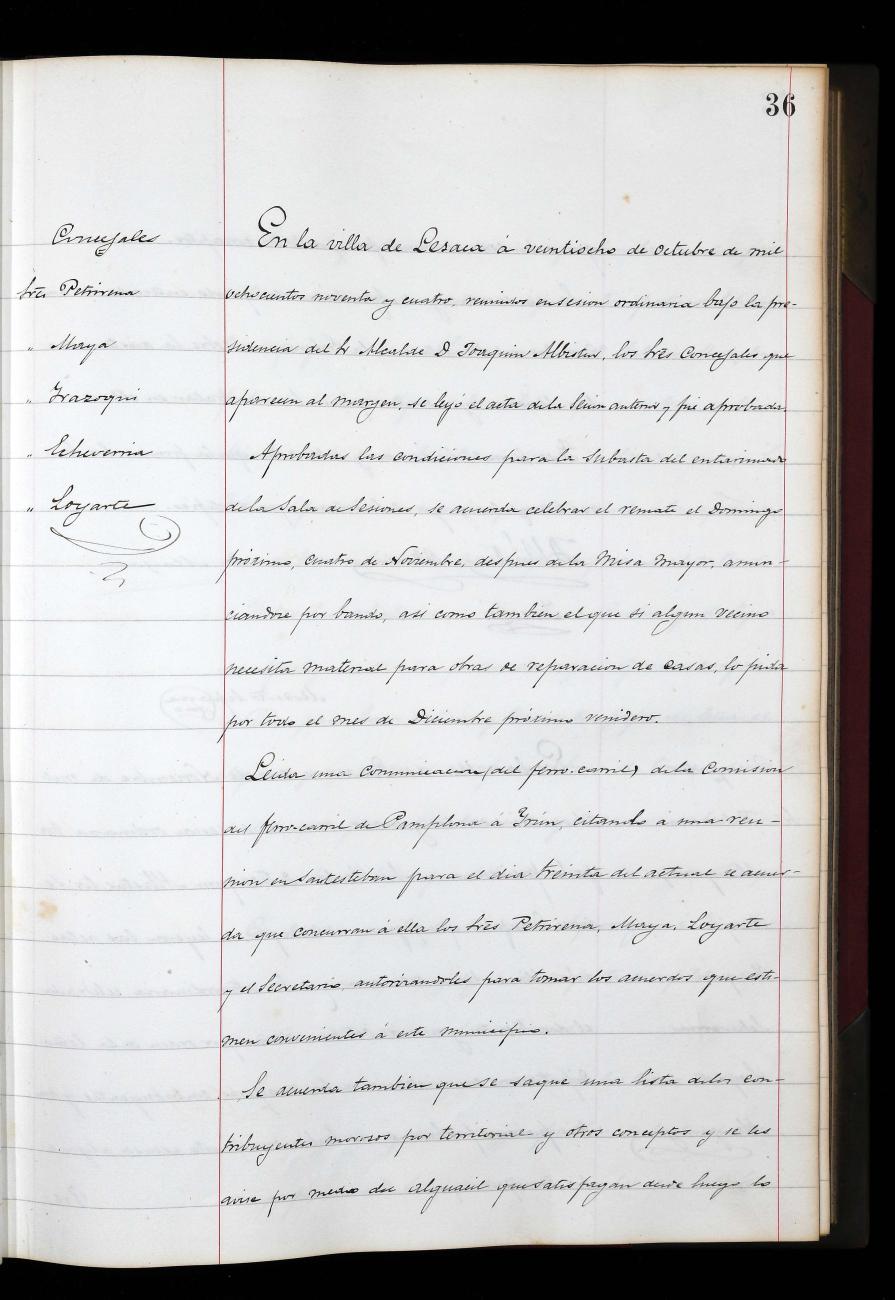 36
Concejales
Sres Petrirena
" Maya
" Yrazoqui
" Echeverria
" Loyarte
En la villa de Lesaca á veintiocho de octubre de mil
ochocientos noventa y cuatro, reunidos en sesion ordinaria bajo la pre-
sidencia del Sr Alcalde D Joaquin Albistur, los Sres Concejales que
aparecen al margen, se leyó el acta de la sesion anterior y fue aprobada.
Aprobadas las condiciones para la subasta del entarimado
de la Sala de Sesiones, se acuerda celebrar el remate el Domingo
próximo, cuatro de Noviembre, despues de la Misa Mayor, anun-
ciandose por bando, asi como tambien el que si algun vecino
necesita material para obras de reparacion de casas, lo pida
por todo el mes de Diciembre próximo venidero.
Leida una comunicacion (del ferro-carril) de la Comision
del ferro-carril de Pamplona á Yrún, citando á una reu-
nion en Santesteban para el dia treinta del actual se acuer-
da que concurran á ella los Sres Petrirena, Maya, Loyarte
y el Secretario, autorizandoles para tomar los acuerdos que esti-
men convenientes á este municipio.
Se acuerda tambien que se saque una lista de los con-
tribuyentes morosos por territorial y otros conceptos y se les
avise por medio del Alguacil que satisfagan desde luego lo